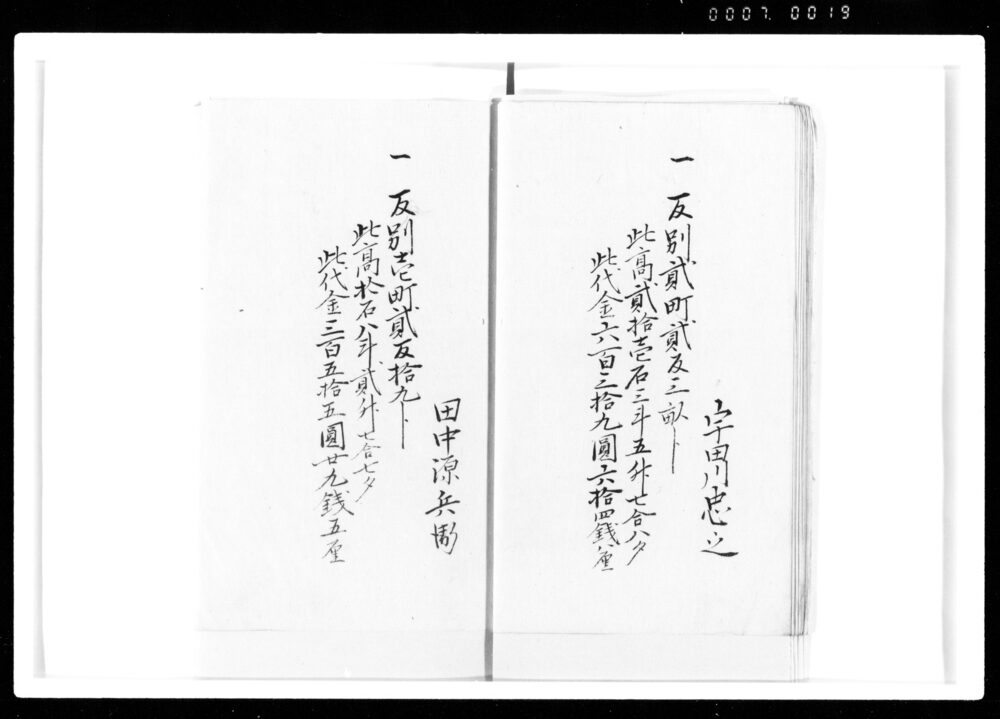 0007. 0019
宇田川忠之
一 反別貳町貳反三畝ト
此高貳拾壱石三斗五升七合八夕
此代金六百三拾九圓六拾四銭厘
田中源兵衛
一 反別壱町貳反拾九ト
此高拾石八斗貳升七合七夕
此代金三百五拾五圓廿九銭五厘